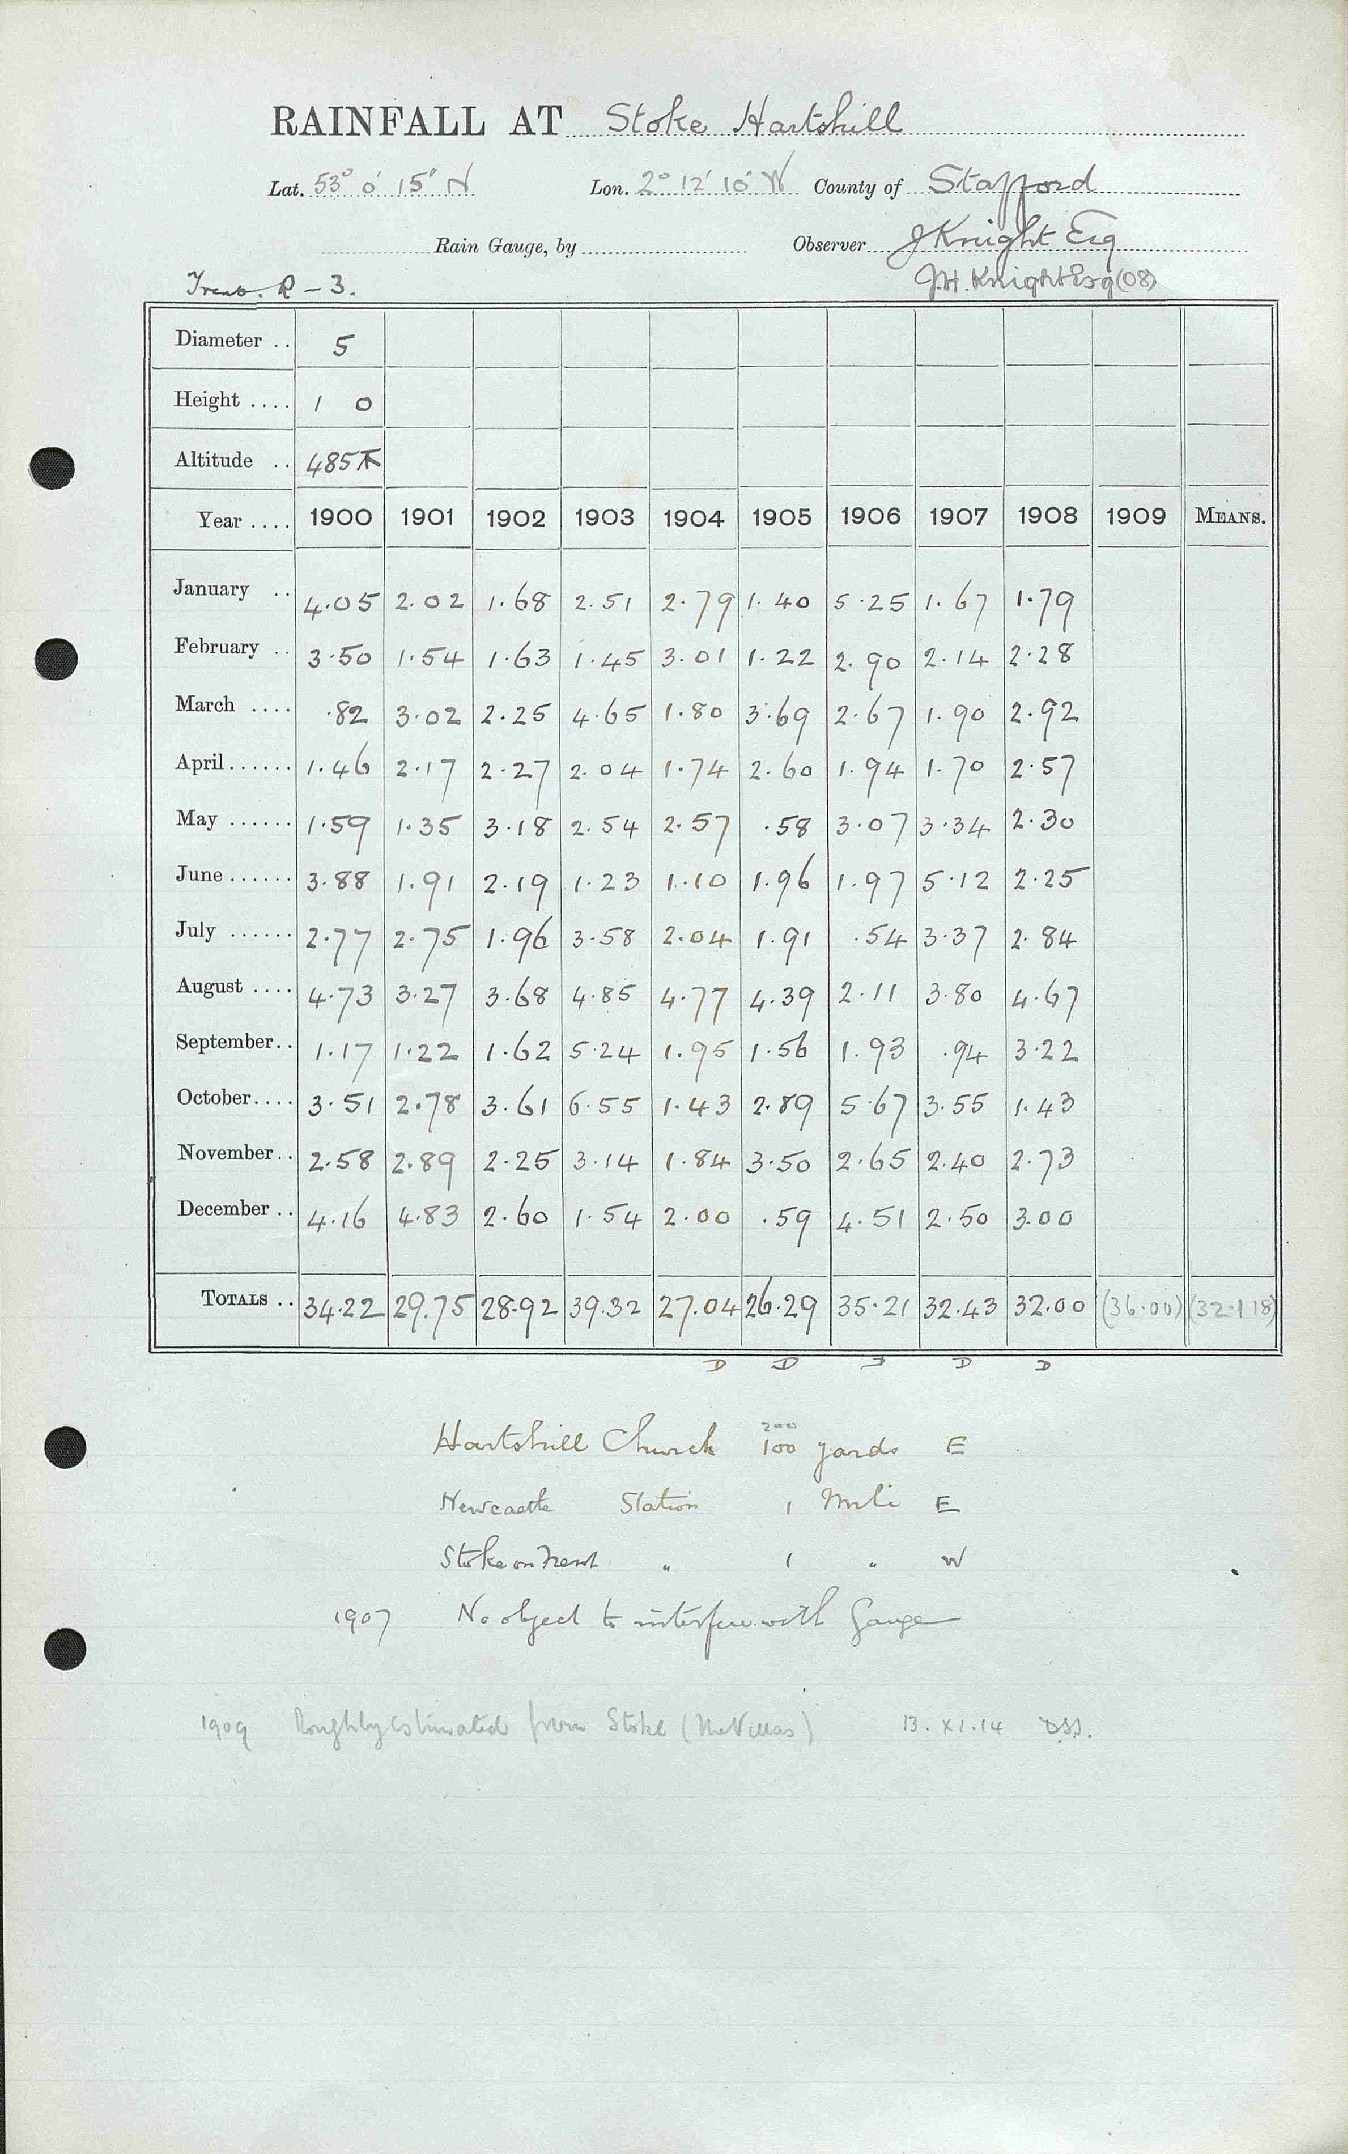 RAINFALL AT Stoke Hartshill
Lat. 53° 0' 15" N Lon. 2° 12' 10" W County of Stafford
Rain Gauge, by Observer J Knight Esq
Trent. R - 3. J.H. Knight Esq (08)
Diameter .. 5
Height .... 1 0
Altitude .. 485
Year .... 1900 1901 1902 1903 1904 1905 1906 1907 1908 1909 MEANS.
January .. 4.05 2.02 1.68 2.51 2.79 1.40 5.25 1.67 1.79
February .. 3.50 1.54 1.63 1.45 3.01 1.22 2.90 2.14 2.28
March .... .82 3.02 2.25 4.65 1.80 3.69 2.67 1.90 2.92
April...... 1.46 2.17 2.27 2.04 1.74 2.60 1.94 1.70 2.57
May ...... 1.59 1.35 3.18 2.54 2.57 .58 3.07 3.34 2.30
June...... 3.88 1.91 2.19 1.23 1.10 1.96 1.97 5.12 2.25
July ...... 2.77 2.75 1.96 3.58 2.04 1.91 .54 3.37 2.84
August .... 4.73 3.27 3.68 4.85 4.77 4.39 2.11 3.80 4.67
September.. 1.17 1.22 1.62 5.24 1.95 1.56 1.93 .94 3.22
October.... 3.51 2.78 3.61 6.55 1.43 2.89 5.67 3.55 1.43
November.. 2.58 2.89 2.25 3.14 1.84 3.50 2.65 2.40 2.73
December .. 4.16 4.83 2.60 1.54 2.00 .59 4.51 2.50 3.00
TOTALS .. 34.22 29.75 28.92 39.32 27.04 26.29 35.21 32.43 32.00 (36.00) (32.118)
D D D D
Hartshill Church 100 yards E
200
Newcastle Station 1 Mile E
Stoke on Trent " 1 " W
1907 No object to interfere with Gauge
1909 Roughly estimated from Stoke (The Villas) 13.XI.14